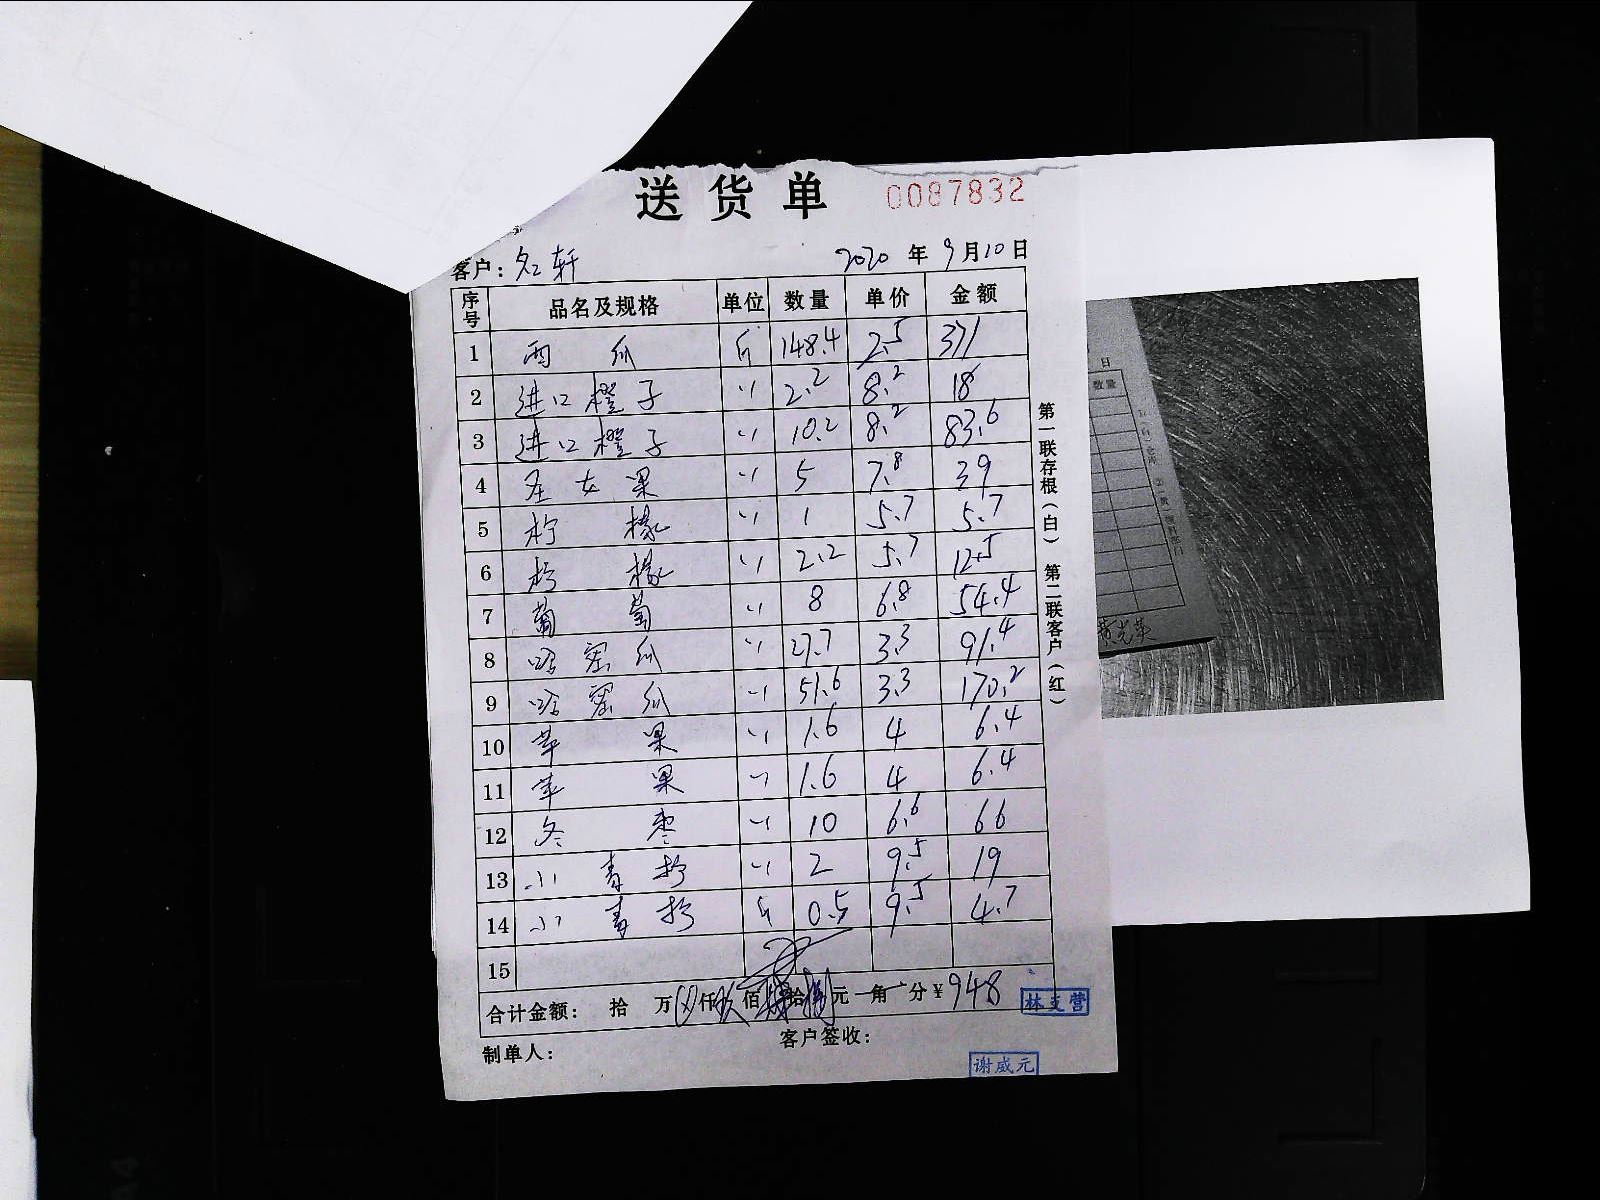 送货单 0087832
客户: 名轩 2020 年 9 月 10 日
序号 品名及规格 单位 数量 单价 金额
1 西瓜 斤 148.4 2.5 371
2 进口橙子 〃 2.2 8.2 18
3 进口橙子 〃 10.2 8.2 83.6
4 圣女果 〃 5 7.8 39
5 柠檬 〃 1 5.7 5.7
6 柠檬 〃 2.2 5.7 12.5
7 葡萄 〃 8 6.8 54.4
8 哈密瓜 〃 27.7 3.3 91.4
9 哈密瓜 〃 51.6 3.3 170.2
10 苹果 〃 1.6 4 6.4
11 苹果 〃 1.6 4 6.4
12 冬枣 〃 10 6.6 66
13 小青柠 〃 2 9.5 19
14 小青柠 斤 0.5 9.5 4.7
15
合计金额: 拾 万 仟玖佰肆拾捌元 角 分 ¥948
林支营
制单人: 客户签收:
谢威元
第一联存根(白) 第二联客户(红)
日
数量